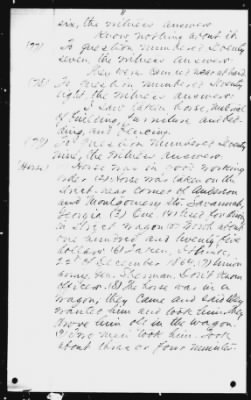 six, the witness answers.
Know nothing about it.
77) To question numbered Seventy
seven, the witness answers.
They were camped near at hand.
78) To question numbered Seventy
eight the witness answers
I saw taken horse, material
of building, furniture and bed-
ding, and fencing.
79) To question numbered Seventy
nine, the witness answers.
(Horse) Horse was in good working
order & Horse was taken on the
street near corner of Anderson
and Montgomery Sts Savannah,
Georgia (3) One. (4) Used for
in wagon. Worth about
one hundred and twenty five
dollars (6) Taken, about
22d of December 1864. (7) Union
army, Gen. Sherman. Don't know
officers. (8) The horse was in a
wagon, they came and said they
wanted him and took him, they
drove him off in the wagon.
(9) Two men took him. Took
about three or four minutes